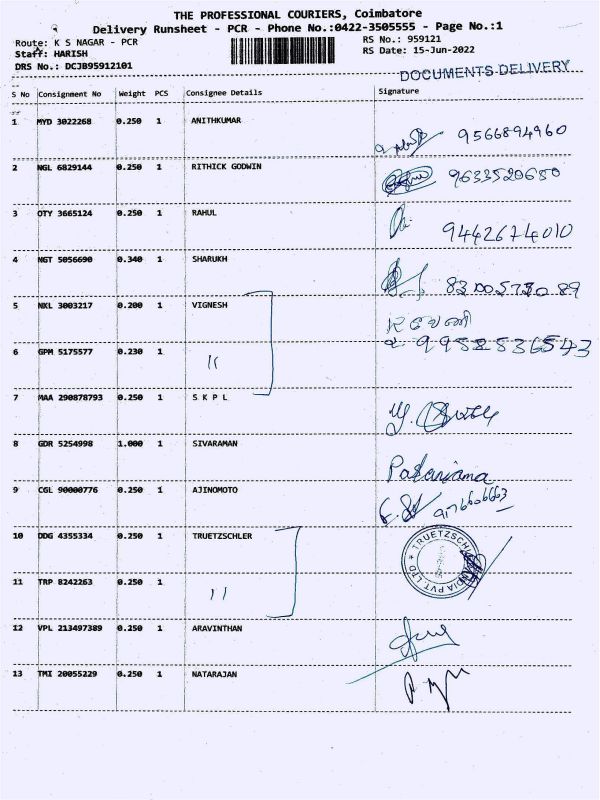 THE PROFESSIONAL COURIERS, Coimbatore
Delivery Runsheet - PCR - Phone No.:0422-3505555 - Page No.:1
Route: K S NAGAR - PCR
RS No.: 959121
Staff: HARISH
RS Date: 15-Jun-2022
DRS No.: DCJB95912101
DOCUMENTS DELIVERY
S No Consignment No Weight PCS Consignee Details Signature
1 MYD 3022268 0.250 1 ANITHKUMAR
9566894960
2 NGL 6829144 0.250 1 RITHICK GODWIN
9633520650
3 OTY 3665124 0.250 1 RAHUL
9442674010
4 NGT 5056690 0.340 1 SHARUKH
5 NKL 3003217 0.200 1 VIGNESH
6 GPM 5175577 0.230 1 "
7 MAA 290878793 0.250 1 S K P L
8 GDR 5254998 1.000 1 SIVARAMAN
9 CGL 90000776 0.250 1 AJINOMOTO
10 DDG 4355334 0.250 1 TRUETZSCHLER
11 TRP 8242263 0.250 1 "
12 VPL 213497389 0.250 1 ARAVINTHAN
13 TMI 20055229 0.250 1 NATARAJAN